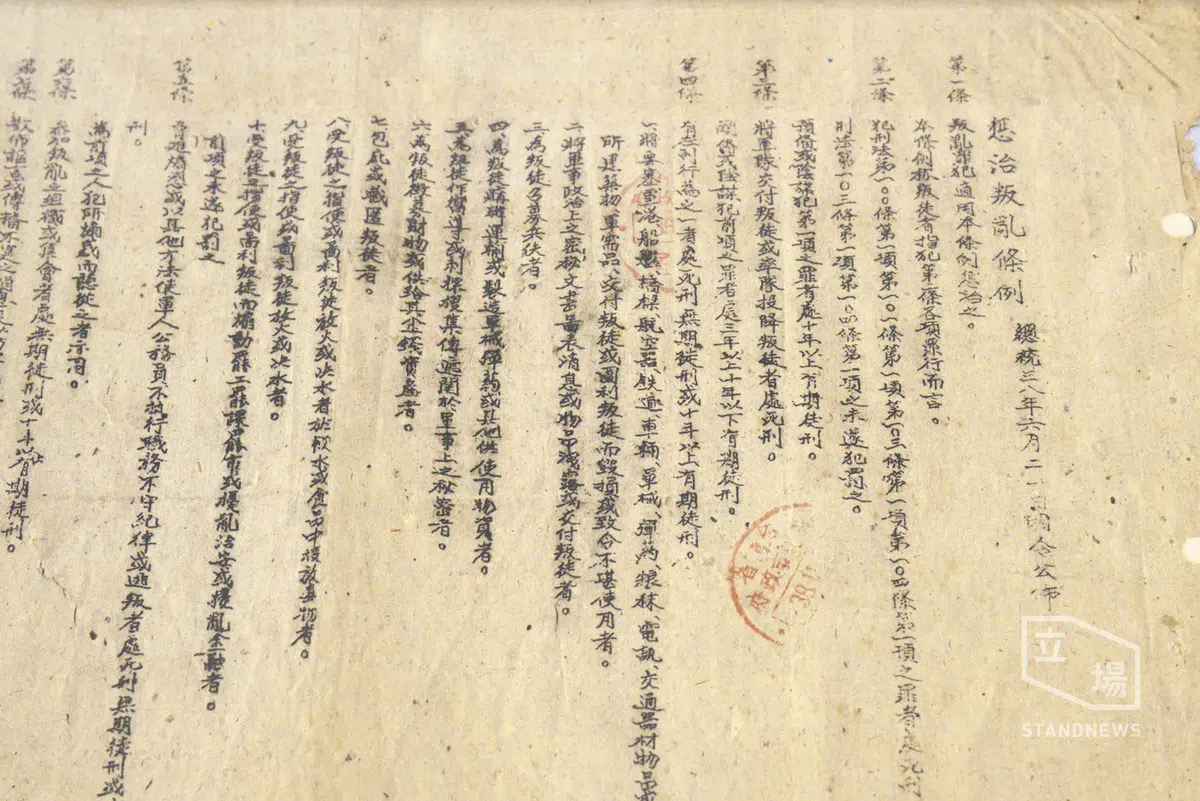 懲治叛亂條例
總統三八年六月二一日明令公佈
第一條
叛亂罪犯適用本條例懲治之。
本條例稱叛徒者指犯第二條各項罪行而言。
第二條
犯刑法第一〇〇條第一項第一〇一條第一項第一〇三條第一項第一〇四條第一項之罪者處死刑
刑法第一〇三條第一項第一〇四條第一項之未遂犯罰之。
預備或陰謀犯第一項之罪者處十年以上有期徒刑。
第三條
將軍隊交付叛徒或率隊投降叛徒者處死刑。
預備或陰謀犯前項之罪者處三年以上十年以下有期徒刑。
第四條
有左列行為之一者處死刑無期徒刑或十年以上有期徒刑。
一、將要塞軍港船艦、橋樑、航空器、鉄道、車輛、軍械、彈葯、粮秣、電訊、交通器材物品或
所建築物、軍需品、交付叛徒或圖利叛徒而毀損或致令不堪使用者。
二、將軍事政治上之密秘文書圖表消息或物品洩露或交付叛徒者。
三、為叛徒召募兵伕者。
四、為叛徒購辦運輸或製造軍械彈葯或其他供使用物資者。
五、為叛徒作嚮導或刺探搜集傳遞関於軍事上之秘密者。
六、為叛徒徵募財物或供給其金錢資産者。
七、包庇或藏匿叛徒者。
八、受叛徒之指使或圖利叛徒放火或决水者於飲水或食品中投放毒物者。
九、受叛徒之指使或圖利叛徒放火或决水者。
十、受叛徒之指使或圖利叛徒而煽動罷工罷課罷市或擾亂治安或擾亂金融者。
前項之未遂犯罰之
第五條
以其他方法使軍人公務員不執行職務不守紀律或逃叛者處死刑無期徒刑或
刑。
為前項之人犯所煽惑而聽從之者亦同。
第六條
參加叛亂之組織或集會者處無期徒刑或十年以上有期徒刑。
立場
STANDNEWS